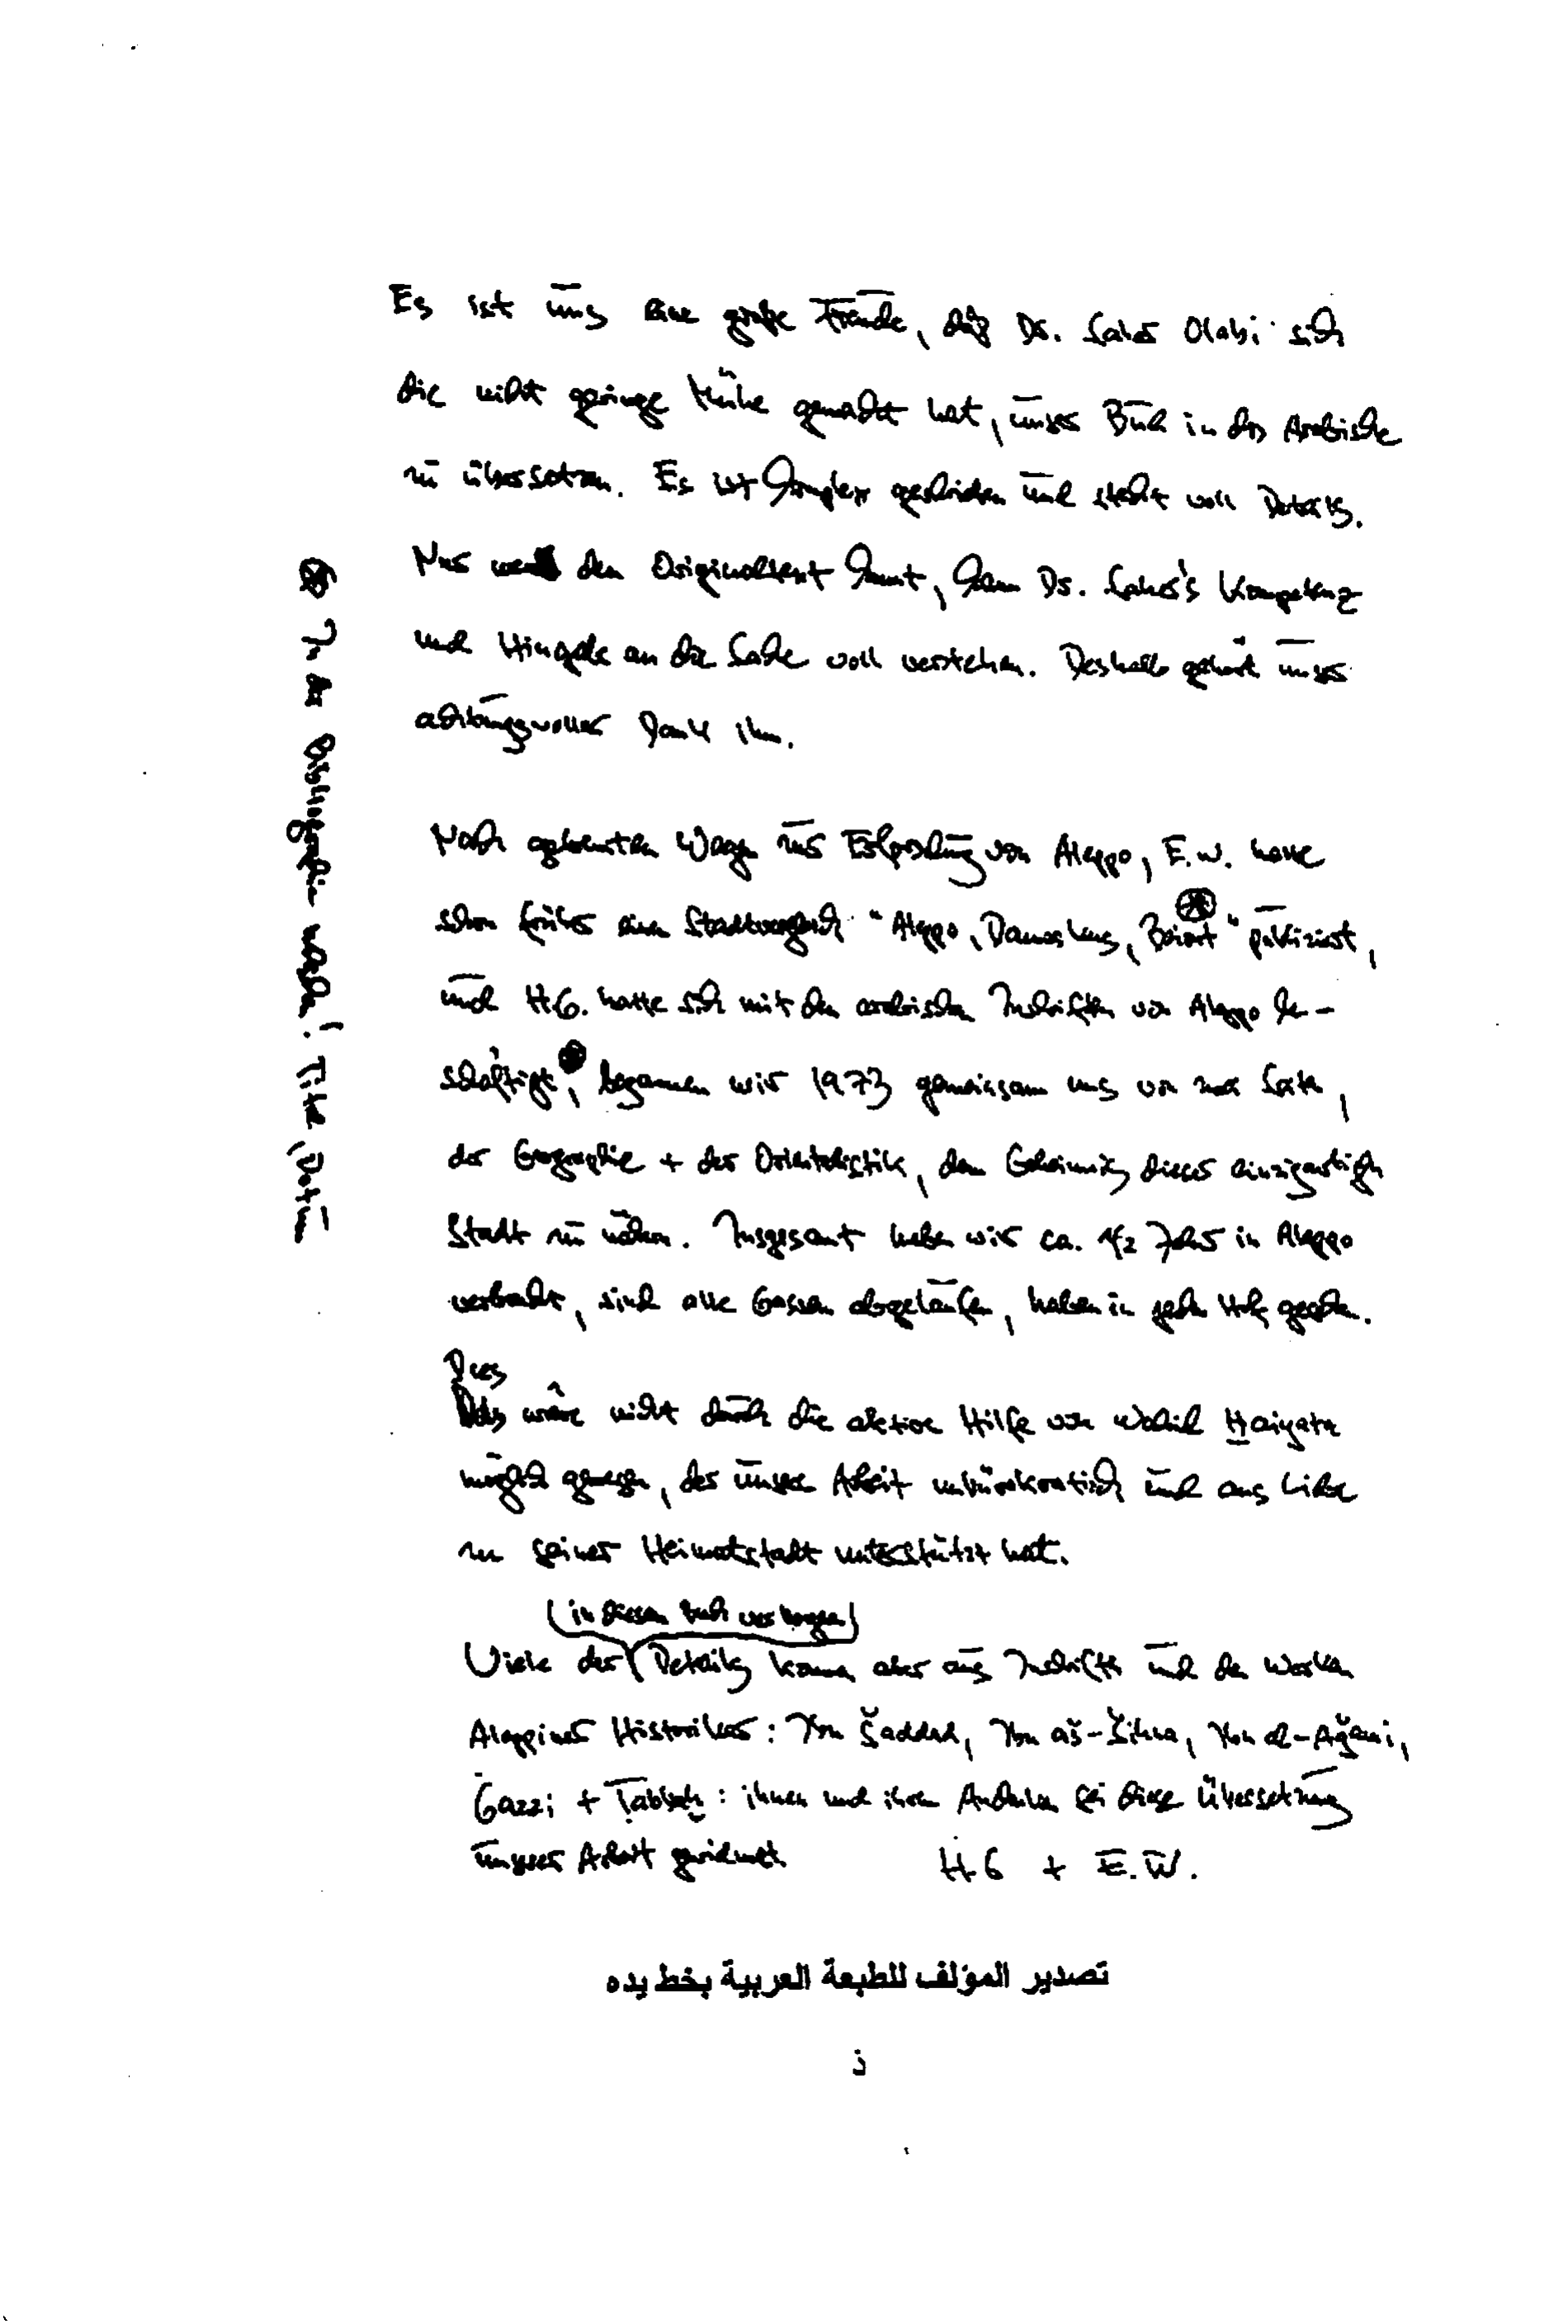 Es ist uns eine große Freude, daß Dr. Saher Olabi sich
die nicht geringe Mühe gemacht hat, unser Buch in das Arabische
zu übersetzen. Es ist komplex geschrieben und steckt voll Details.
Nur wer den Originaltext kennt, kann Dr. Saher's Kompetenz
und Hingabe an die Sache voll verstehen. Deshalb gehört unser
achtungsvoller Dank ihm.
Nach getrennten Wegen zur Erforschung von Aleppo, E.W. hatte
schon früher einen Stadtvergleich "Aleppo, Damaskus, Beirut" publiziert,
und H.G. hatte sich mit den arabischen Inschriften von Aleppo be-
schäftigt, begannen wir 1973 gemeinsam uns von zwei Seiten,
der Geographie + der Orientalistik, dem Geheimnis dieser einzigartigen
Stadt zu nähern. Insgesamt haben wir ca. 1/2 Jahr in Aleppo
verbracht, sind alle Gassen abgelaufen, haben in jeden Hof gesehen.
Dies
wäre nicht durch die aktive Hilfe von Wahid Ḫaiyata
möglich gewesen, der unsere Arbeit unbürokratisch und aus Liebe
zu seiner Heimatstadt unterstützt hat.
(in diesem Buch verborgen)
Viele der Details kamen aber aus Inschriften und den Werken
Aleppiner Historiker: Ibn Šaddad, Ibn aš-Šiḥna, Ibn al-Ağami,
Ġazzi + Ṭabbaḫ: ihnen und ihrem Andenken sei diese Übersetzung
unserer Arbeit gewidmet. HG + E.W.
In der Bibliographie suchen! Titel, Datum
تصدير المؤلف للطبعة العربية بخط يده
ز